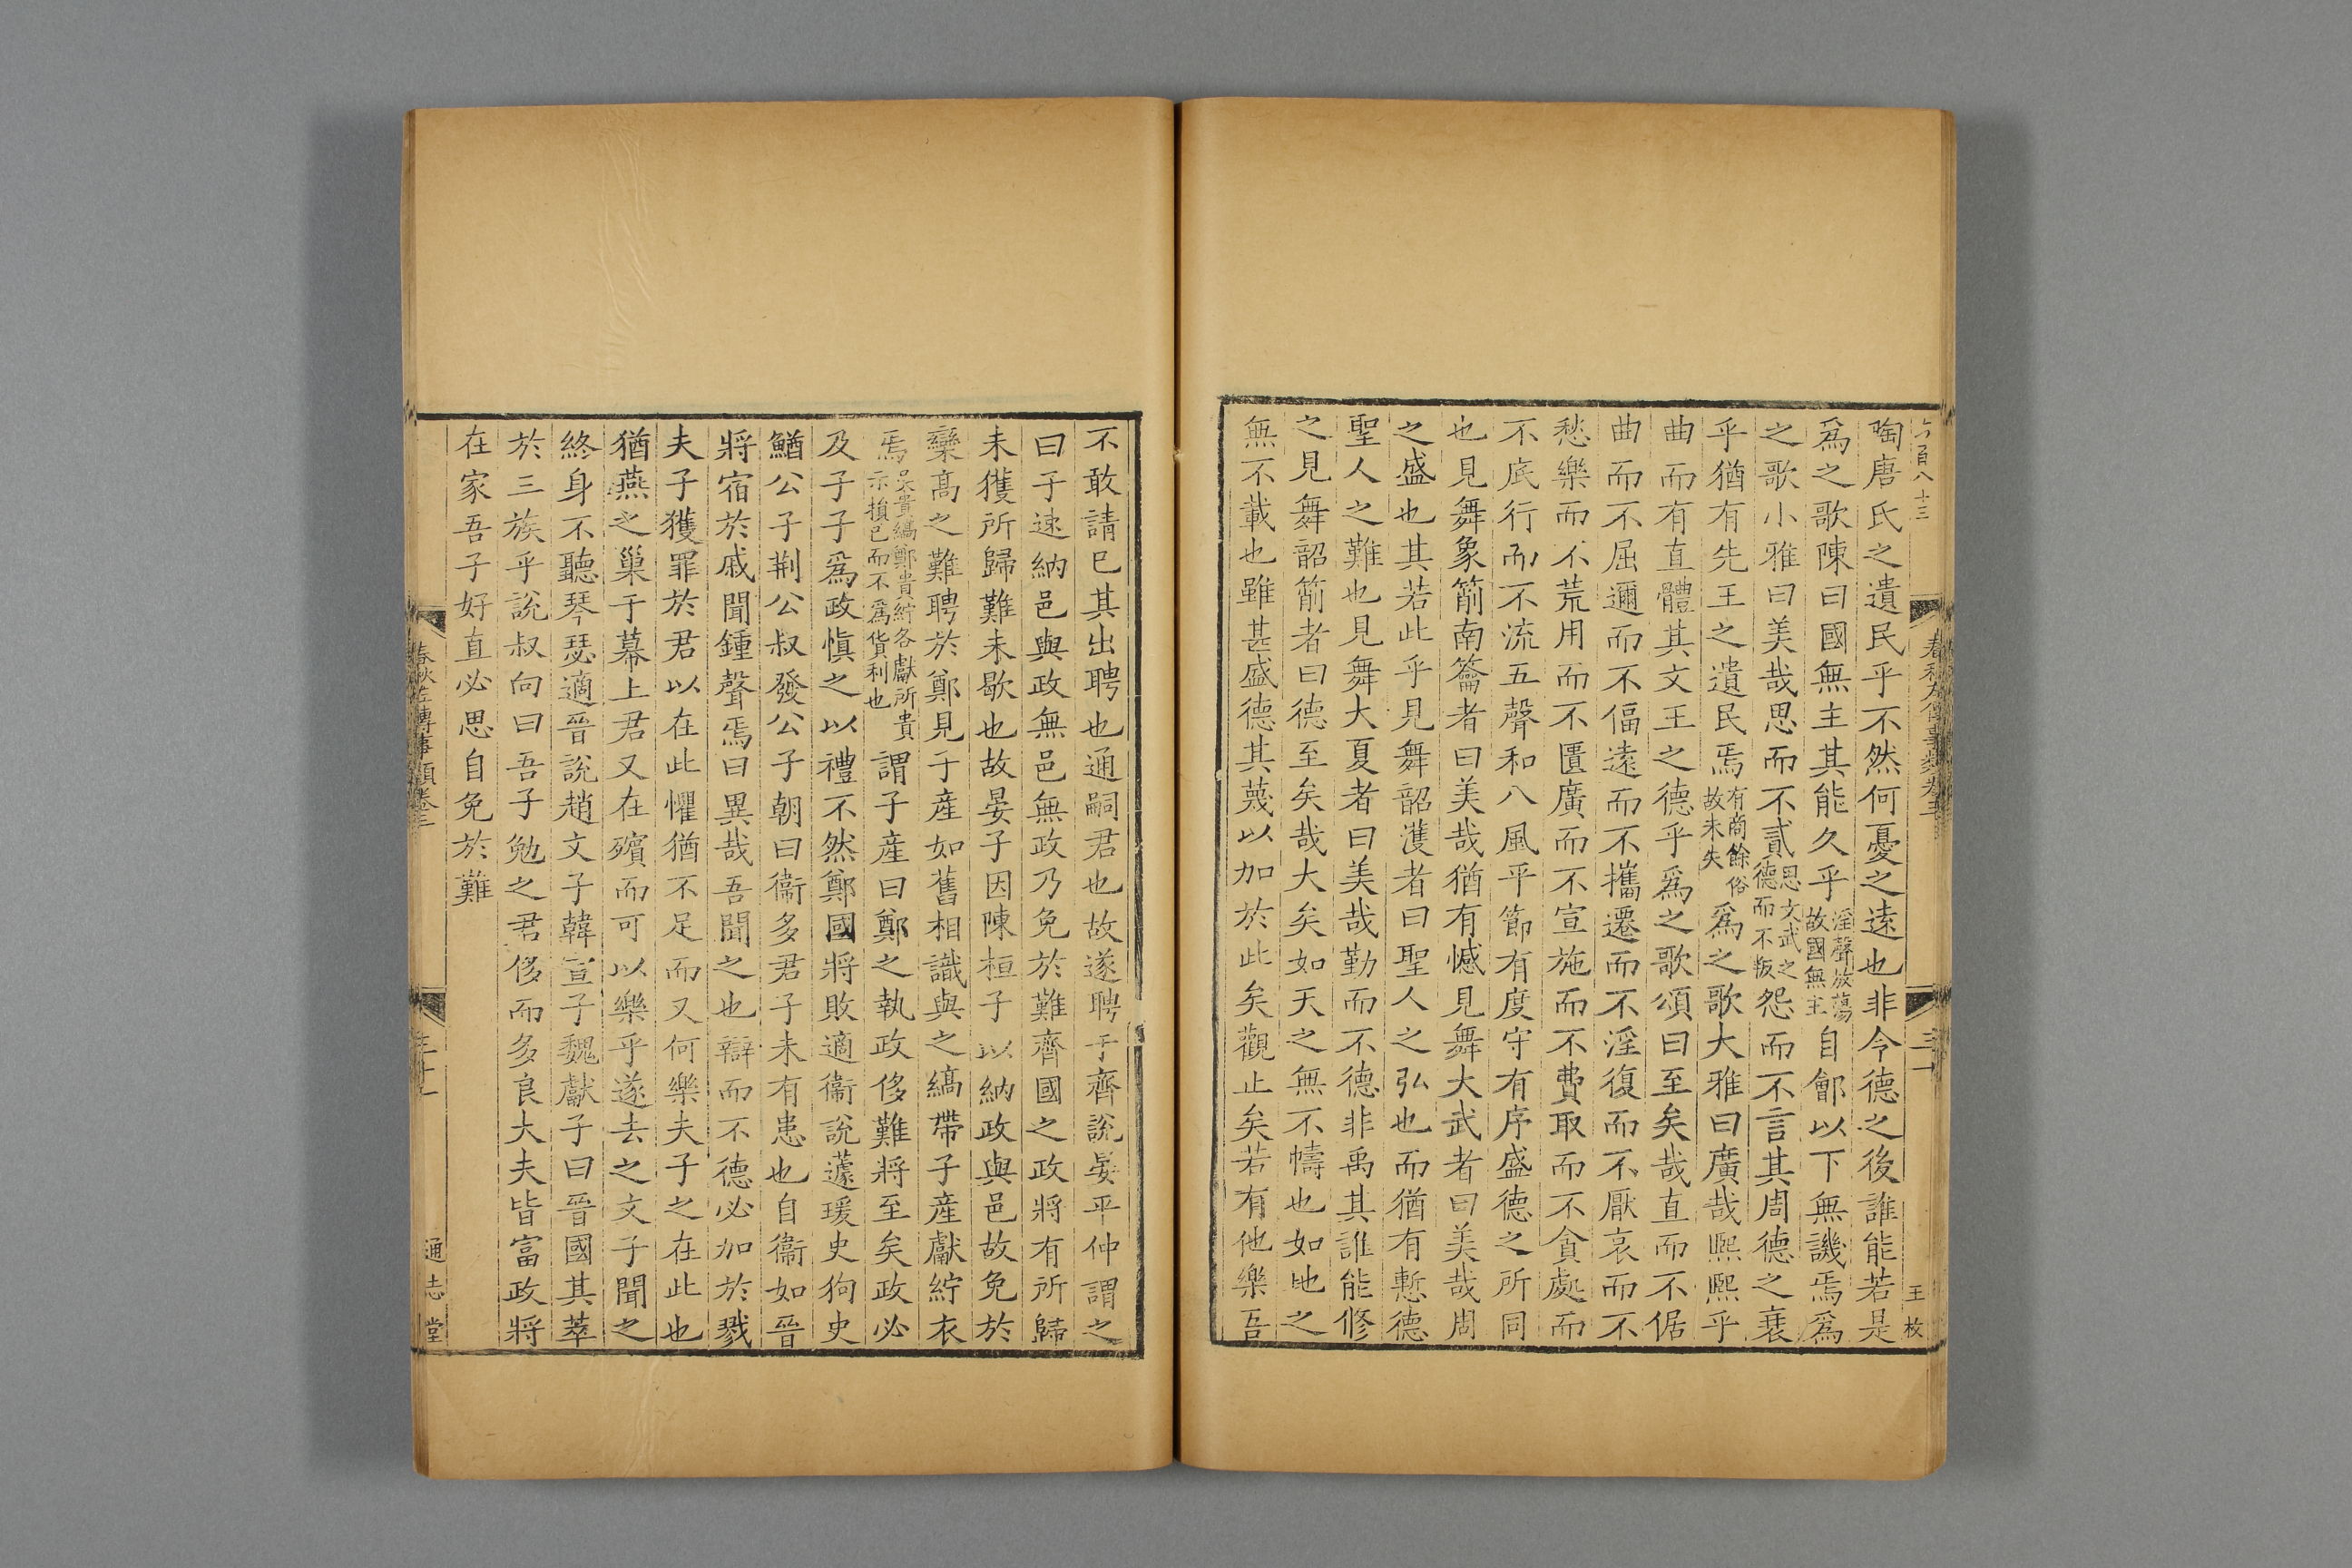 六百八十三
春秋左傳事類卷三
三十一
王枚
陶唐氏之遺民乎不然何憂之遠也非令德之後誰能若是
爲之歌陳曰國無主其能久乎淫聲放蕩故國無主自鄶以下無譏焉爲
之歌小雅曰美哉思而不貳思文武之德而不叛怨而不言其周德之衰
乎猶有先王之遺民焉有商餘俗故未失爲之歌大雅曰廣哉熙熙乎
曲而有直體其文王之德乎爲之歌頌曰至矣哉直而不倨
曲而不屈邇而不偪遠而不攜遷而不淫復而不厭哀而不
愁樂而不荒用而不匱廣而不宣施而不費取而不貪處而
不底行而不流五聲和八風平節有度守有序盛德之所同
也見舞象箾南籥者曰美哉猶有憾見舞大武者曰美哉周
之盛也其若此乎見舞韶濩者曰聖人之弘也而猶有慙德
聖人之難也見舞大夏者曰美哉勤而不德非禹其誰能修
之見舞韶箾者曰德至矣哉大矣如天之無不幬也如地之
無不載也雖甚盛德其蔑以加於此矣觀止矣若有他樂吾
不敢請巳其出聘也通嗣君也故遂聘于齊說晏平仲謂之
曰子速納邑與政無邑無政乃免於難齊國之政將有所歸
未獲所歸難未歇也故晏子因陳桓子以納政與邑故免於
欒高之難聘於鄭見子產如舊相識與之縞帶子產獻紵衣
焉吳貴縞鄭貴紵各獻所貴示損已而不爲貨利也謂子產曰鄭之執政侈難將至矣政必
及子子爲政愼之以禮不然鄭國將敗適衞說蘧瑗史狗史
鰌公子荆公叔發公子朝曰衞多君子未有患也自衞如晉
將宿於戚聞鍾聲焉曰異哉吾聞之也辯而不德必加於戮
夫子獲罪於君以在此懼猶不足而又何樂夫子之在此也
猶燕之巢于幕上君又在殯而可以樂乎遂去之文子聞之
終身不聽琴瑟適晉說趙文子韓宣子魏獻子曰晉國其萃
於三族乎說叔向曰吾子勉之君侈而多良大夫皆富政將
在家吾子好直必思自免於難
春秋左傳事類卷三
三十一
通志堂